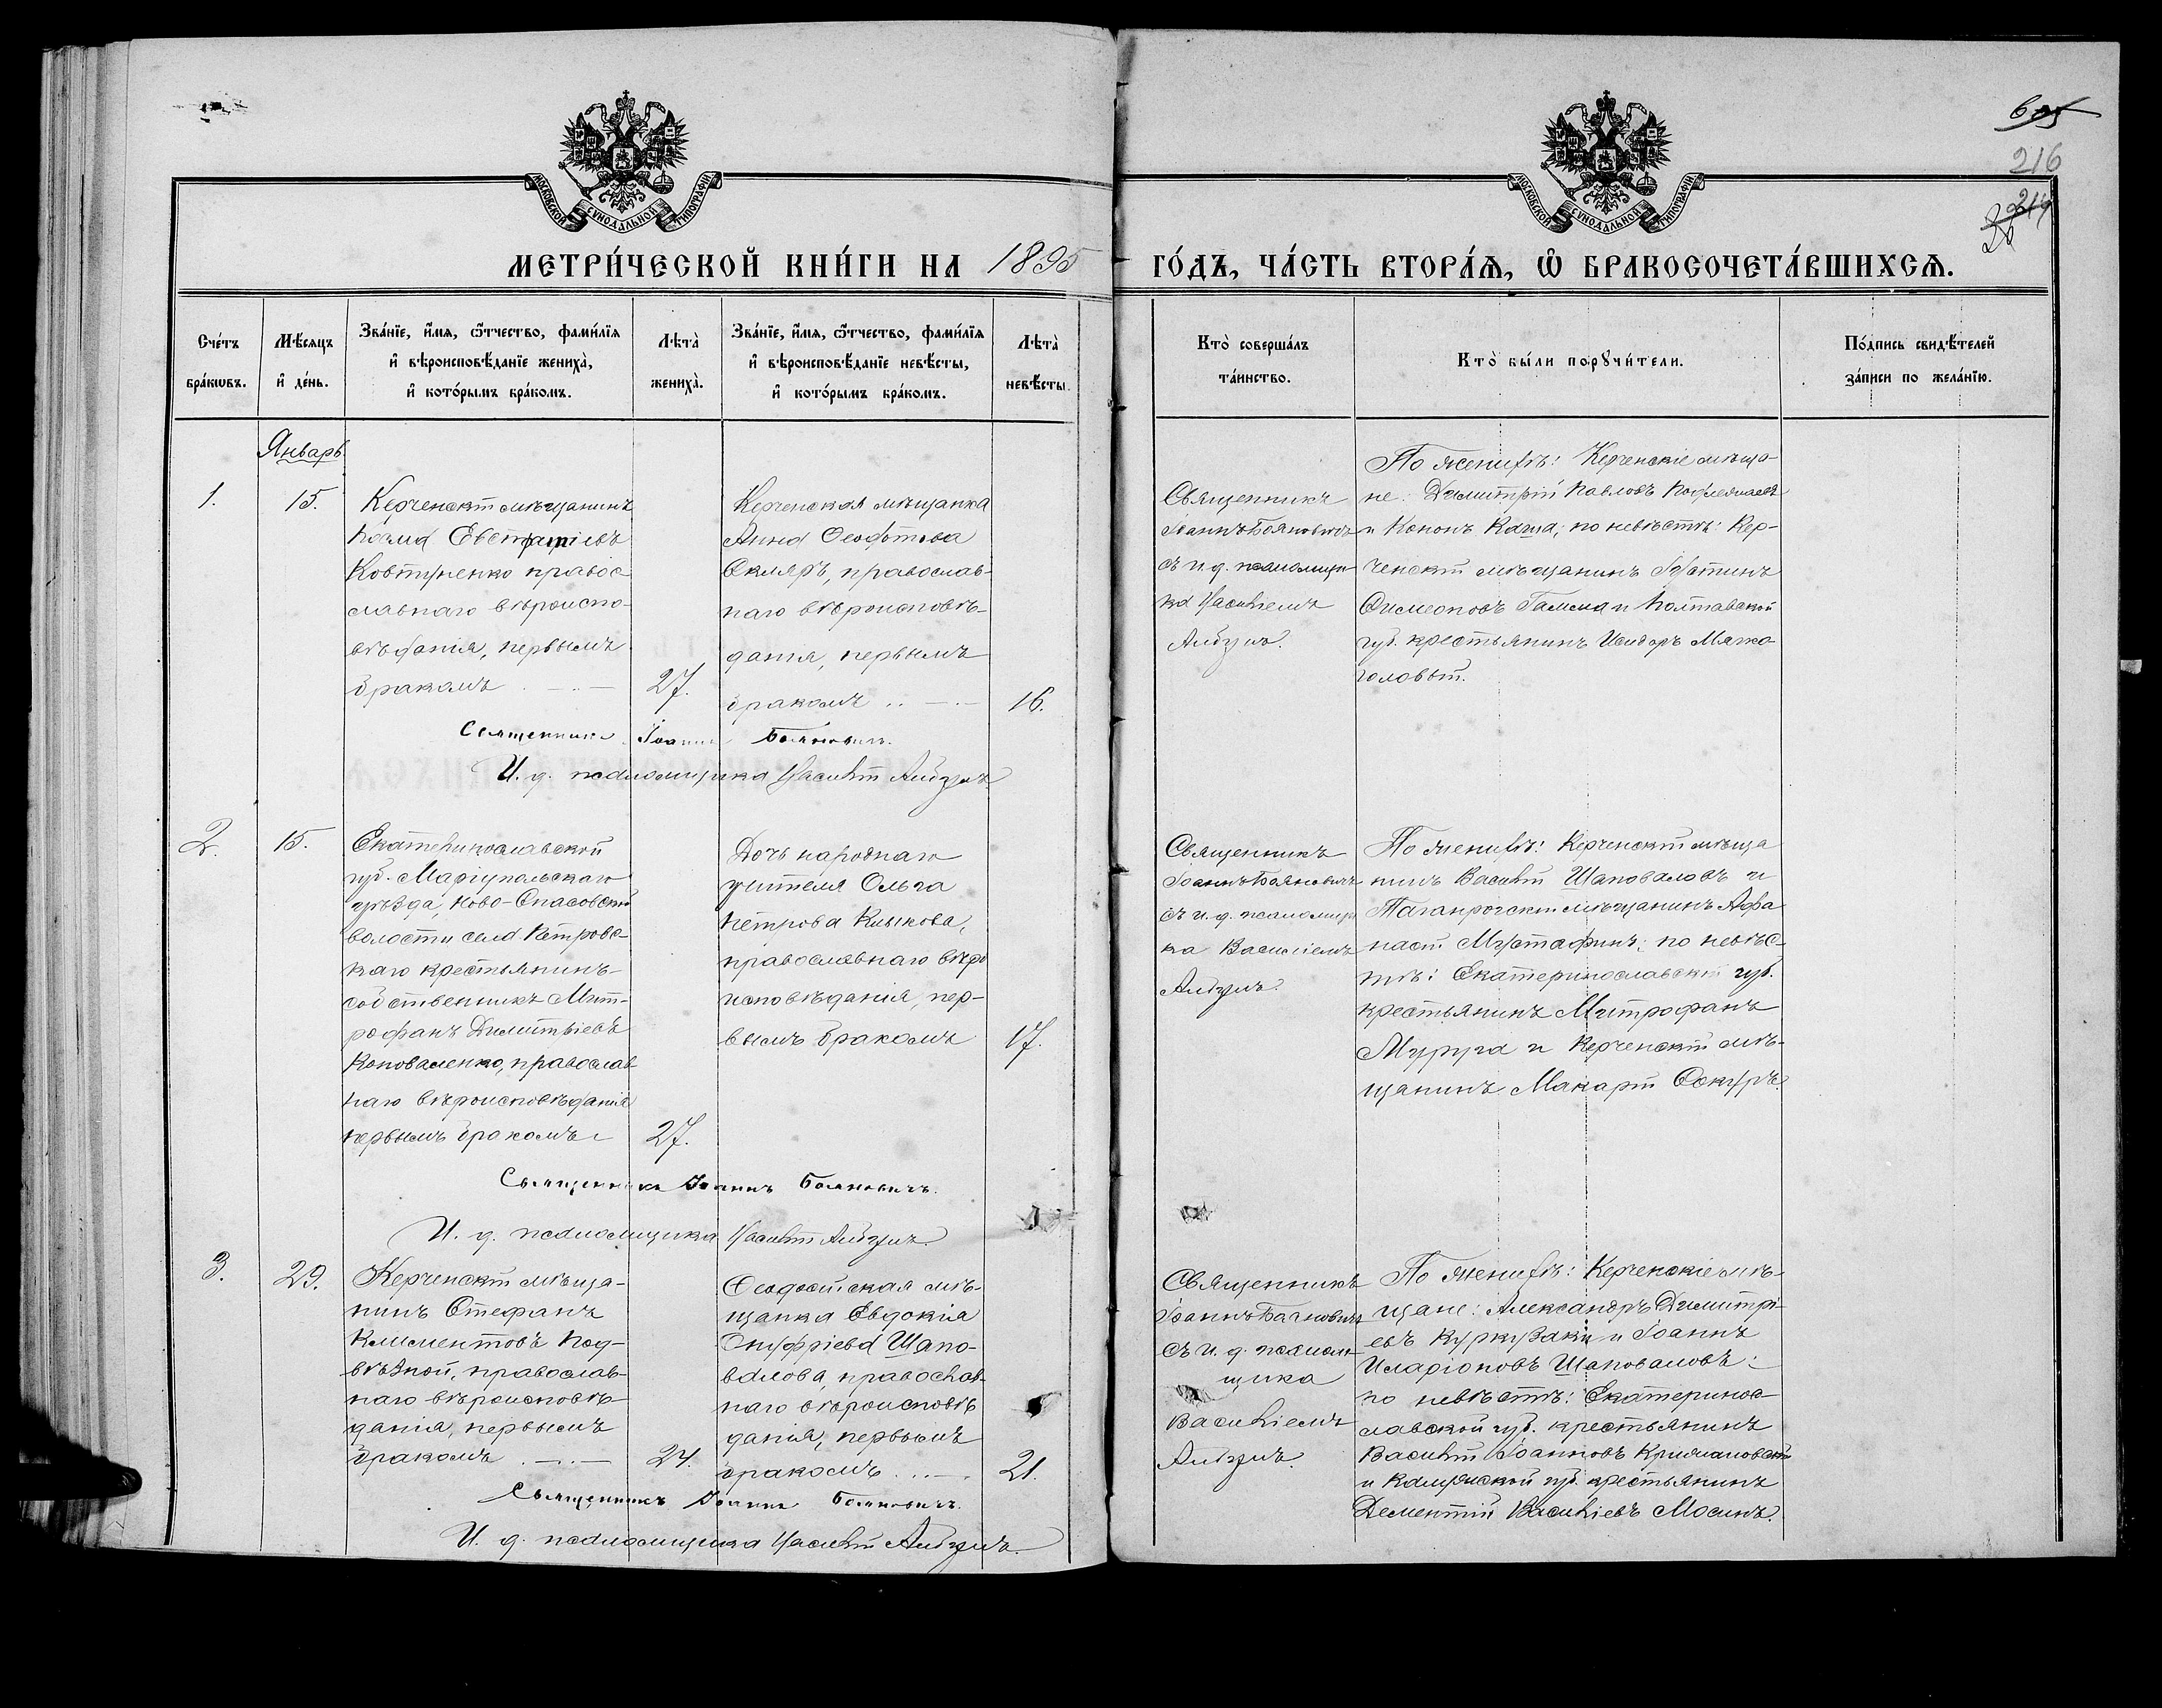 МОСКОВСКОЙ СУНОДАЛЬНОЙ ТИПОГРАФІИ
МОСКОВСКОЙ СУНОДАЛЬНОЙ ТИПОГРАФІИ
605
216
МЕТРИ́ЧЕСКОЙ КНИ́ГИ НА 1895 ГО́ДЪ, ЧА́СТЬ ВТОРА́Ѧ, Ѽ БРАКОСОЧЕТА́ВШИХСѦ.
Сче́тъ
бра́кωвъ.
Мѣ́сяцъ
и҆ де́нь.
Зва́нїе, и҆́мѧ, ѻ҆́тчество, фами́лїѧ
и҆ вѣроисповѣ́данїе жениха̀,
и҆ кото́рымъ бра́комъ.
Лѣта̀
жениха̀.
Зва́нїе, и҆́мѧ, ѻ҆́тчество, фами́лїѧ
и҆ вѣроисповѣ́данїе невѣ́сты,
и҆ кото́рымъ бра́комъ.
Лѣта̀
невѣ́сты.
Кто̀ соверша́лъ
та́инство.
Кто̀ бы́ли порꙋчи́тели.
По́дпись свидѣ́телей
за́писи по жела́нїю.
Январь
1.
15.
Керченскій мѣщанинъ
Косма Евстафіевъ
Ковтуненко правос-
славнаго вѣроиспо-
вѣданія, первымъ
бракомъ
27.
Керченская мѣщанка
Анна
Скляръ, православ-
наго вѣроисповѣ-
данія, первымъ
бракомъ
16.
Священникъ Іоаннъ Бояновичъ.
И. д. псаломщика Василій
Священникъ
Іоаннъ Бояновичъ
съ и. д. псаломщи-
ка Василіемъ
По женихѣ: Керченскіе мѣща-
не: Димитрій Павловъ
и Кононъ Каша; по невѣстѣ: Кер-
ченскій мѣщанинъ Іустинъ
Симеоновъ и Полтавской
губ. крестьянинъ Исидоръ Мягко-
головый.
2.
15.
Екатеринославской
губ. Маріупольскаго
уѣзда, Ново-Спасовской
волости села Петровс-
каго крестьянинъ-
собственникъ Мит-
рофанъ Димитріевъ
Коноваленко, православ-
наго вѣроисповѣданія
первымъ бракомъ
27.
Дочь народнаго
учителя Ольга
Петрова Клыкова,
православнаго вѣро
исповѣданія, пер-
вымъ бракомъ
17.
Священникъ Іоаннъ Бояновичъ.
И. д. псаломщика Василій
Священникъ
Іоаннъ Бояновичъ
съ и. д. псаломщи
ка Василіемъ
По женихѣ: Керченскій мѣща
нинъ Василій Шаповаловъ и
Таганрогскій мѣщанинъ Афа
насій Мустафинъ; по невѣс-
тѣ: Екатеринославской губ.
крестьянинъ Митрофанъ
Муруга и Керченскій мѣ-
щанинъ Макарій Сокуръ.
3.
29.
Керченскій мѣща-
нинъ Стефанъ
Климентовъ Под-
вѣзной, православ-
наго вѣроисповѣ-
данія, первымъ
бракомъ
24.
Ѳеодосійская мѣ-
щанка Евдокія
Онуфріева Шапо-
валова, православ-
наго вѣроисповѣ
данія, первымъ
бракомъ
21.
Священникъ Іоаннъ Бояновичъ.
И. д. псаломщика Василій
Священникъ
Іоаннъ Бояновичъ
съ и. д. псалом-
щика
Василіемъ
По женихѣ: Керченскіе мѣ-
щане: Александръ Димитрі-
евъ Куркузаки и Іоаннъ
Иларіоновъ Шаповаловъ:
по невѣстѣ: Екатеринос-
лавской губ. крестьянинъ
Василій Іоанновъ
и Калужской губ. крестьянинъ
Дементій Василіевъ Мосинъ.